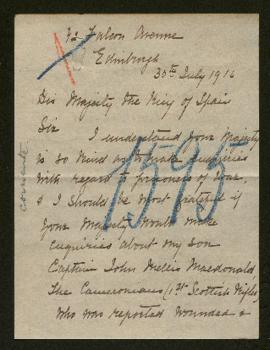 12 Falcon Avenue
Edinburgh
30th July 1916
His Majesty the King of Spain
Sir
I understand your Majesty
is so kind as to make enquiries
with regard to prisoners of war,
& I should be most grateful if
Your Majesty would make
enquiries about my son
Captain John Mellis Macdonald
The Cameronians (1st Scottish Rifles)
who was reported wounded &
1595